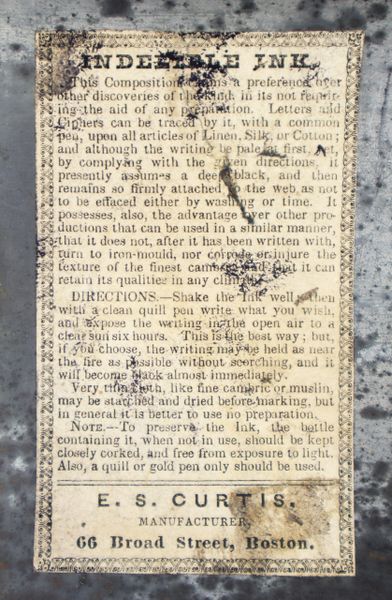 INDELIBLE INK.
This Composition claims a preference over
other discoveries of the kind, in its not requir-
ing the aid of any preparation. Letters and
Ciphers can be traced by it, with a common
pen, upon all articles of Linen, Silk, or Cotton;
and although the writing be pale at first, yet,
by complying with the given directions, it
presently assumes a deep black, and then
remains so firmly attached to the web as not
to be effaced either by washing or time. It
possesses, also, the advantage over other pro-
ductions that can be used in a similar manner,
that it does not, after it has been written with,
turn to iron-mould, nor corrode or injure the
texture of the finest cambric, and that it can
retain its qualities in any climate.
DIRECTIONS.—Shake the Ink well, then
with a clean quill pen write what you wish,
and expose the writing in the open air to a
clear sun six hours. This is the best way; but,
if you choose, the writing may be held as near
the fire as possible without scorching, and it
will become black almost immediately.
Very thin cloth, like fine cambric or muslin,
may be starched and dried before marking, but
in general it is better to use no preparation.
NOTE.—To preserve the Ink, the bottle
containing it, when not in use, should be kept
closely corked, and free from exposure to light.
Also, a quill or gold pen only should be used.
E. S. CURTIS.
MANUFACTURER,
66 Broad Street, Boston.